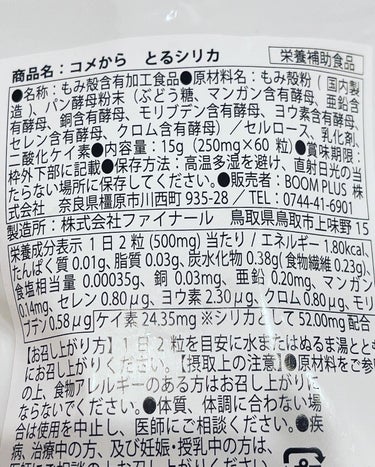 商品名：コメから とるシリカ 栄養補助食品
●名称：もみ殻含有加工食品●原材料名：もみ殻粉（国内製
造）、パン酵母粉末（ぶどう糖、マンガン含有酵母、亜鉛含
有酵母、銅含有酵母、モリブデン含有酵母、ヨウ素含有酵母、
セレン含有酵母、クロム含有酵母）/セルロース、乳化剤、
二酸化ケイ素●内容量：15g（250mg×60粒）●賞味期限：
枠外下部に記載●保存方法：高温多湿を避け、直射日光の当
たらない場所に保存してください。●販売者：BOOM PLUS 株
式会社 奈良県橿原市川西町 935-28 / TEL：0744-41-6901
製造所：株式会社ファイナール 鳥取県鳥取市上味野 15
栄養成分表示 1日2粒（500mg）当たり / エネルギー 1.80kcal、
たんぱく質 0.01g、脂質 0.03g、炭水化物 0.38g（食物繊維 0.23g）、
食塩相当量 0.00035g、銅 0.03mg、亜鉛 0.20mg、マンガン
0.14mg、セレン 0.80μg、ヨウ素 2.30μg、クロム 0.80μg、モリ
ブデン 0.58μg ケイ素 24.35mg ※シリカとして 52.00mg 配合
【お召し上がり方】1日2粒を目安に水またはぬるま湯ととも
にお召し上がりください。【摂取上の注意】●原材料をご参
の上、食物アレルギーのある方はお召し上がりに
ならないでください。●体質、体調に合わない場
合は使用を中止し、医師にご相談ください。●疾
病、治療中の方、及び妊娠・授乳中の方は